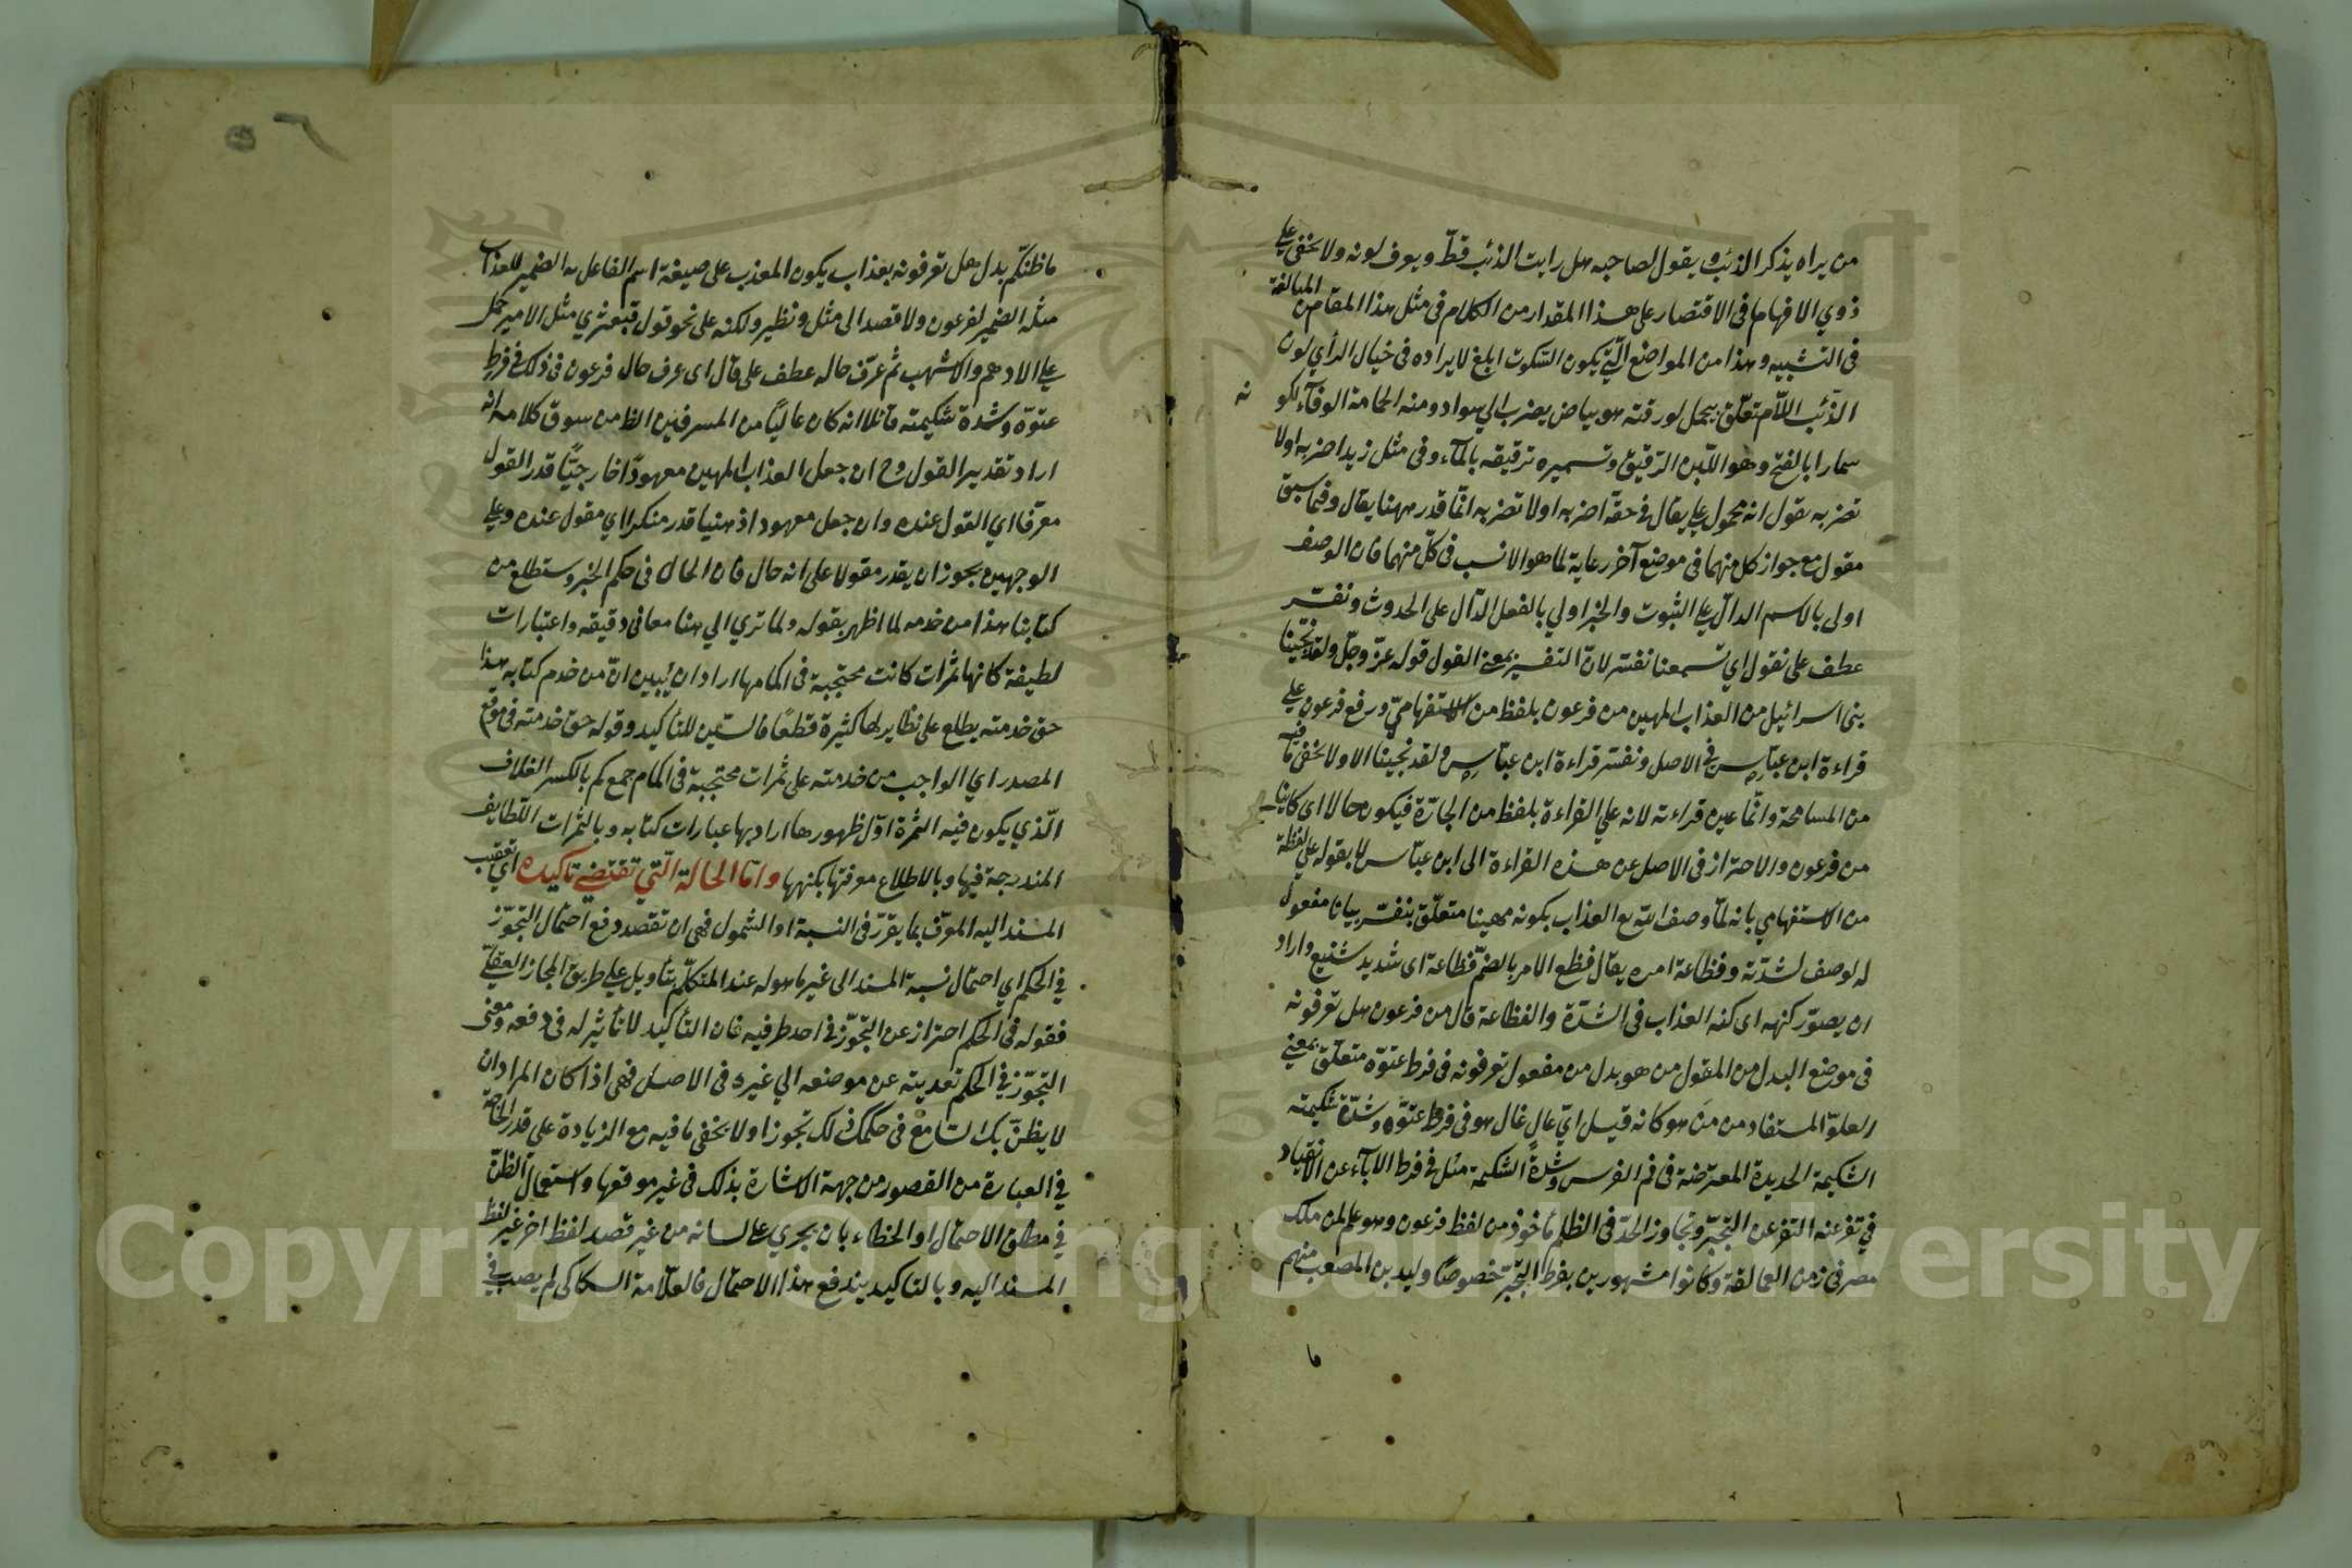 من يراه يذكر الذئب ويقول لصاحبه هل رايت الذئب قط ويعرف لونه ولا يخفى على
ذوي الافهام ما فى الاقتصار على هذا المقدار من الكلام فى مثل هذا المقام من المبالغة
فى التشبيه وهذا من المواضع الّتي يكون السّكوت ابلغ لايراده فى خيال الرأي لون
الذّئب اللاّم متعلّق بيحمل لورقته هو بياض يضرب الي سواد ومنه الحمامة الورقآء لكونه
سمارا بالفتح وهو اللّبن الرّقيق وتسميره ترقيقه بالمآء وفى مثل زيد اضربه اولا
تضربه نقول انه محمول على يقال فى حقّه اضربه اولا تضربه انّما قدر ههنا يقال وفيما سبق
مقول مع جواز كل منهما فى موضع آخر رعاية لما هو الانسب فى كلّ منهما فان الوصف
اولى بالاسم الدالّ على الثبوت والخبر اولي بالفعل الدّال على الحدوث ونفسّر
عطف على نقول اي تسمعنا نفسّر لانّ التفسير بمعنى القول قوله عزّ وجلّ ولقد نجّينا
بنى اسرائيل من العذاب المهين من فرعون بلفظ من الاستفهاميّ ورفع فرعون على
قراءة ابن عبّاس رض فى الاصل ونفسّر قراءة ابن عبّاس رض ولقد نجّينا الا ولا يخفى ما فيه
من المسامحة وانّما عين قراءته لانه على القراءة بلفظ من الجارّة فيكون حالا اى كاينا
من فرعون والاحتراز فى الاصل عن هذه القراءة الى ابن عبّاس لا بقوله على لفظة
من الاستفهامي بانه لمّا وصف اللّه تع العذاب بكونه مهينا متعلّق بنفسّر بيانا مفعول
له لوصف لشدّته وفظاعة امره يقال فظع الامر بالضمّ فظاعة اى شديد شنيع واراد
ان يصوّر كنهه اى كنه العذاب فى الشدّة والفظاعة قال من فرعون هل تعرفونه
فى موضع البدل من المقول من هو بدل من مفعول تعرفونه فى فرط عتوّه متعلّق بمعنى
العلوّ المستفاد من من هو كانه قيل ايّ عال غال هو فى فرط عتوّه وشدّة شكيمته
الشكيمة الحديدة المعترضة فى فم الفرس وشدة الشكيمة مثل فى فرط الابآء عن الانقياد
في تفرعنه التفرعن التجبّر وتجاوز الحدّ فى الظلم مأخوذ من لفظ فرعون وهو علم لمن ملك
مصر فى زمن العمالقة وكانوا مشهورين بفرط التجبّر خصوصًا وليد بن المصعب منهم
ما ظنّكم بدل هل تعرفونه بعذاب يكون المعذب على صيغة اسم الفاعل به الضمير للعذاب
مثله الضمير لفرعون ولا قصد الى مثل ونظير ولكنه على نحو قول قبعثري مثل الامير حمل
على الادهم والاشهب ثم عرّف حاله عطف على قال اى عرف حال فرعون فى ذلك فى فرط
عتوّه وشدة شكيمته قائلا انه كان عاليًا من المسرفين الظ من سوق كلامه انه
اراد تقدير القول وح ان جعل العذاب المهين معهودًا خارجيًّا قدر القول
معرّفا اي القول عنده وان جعل معهودا ذهنيا قدر منكرا اي مقول عنده وعلى
الوجهين يجوز ان يقدر مقولا على انه حال فان الحال فى حكم الخبر وستطلع من
كتابنا هذا من خدمه لما اظهر بقوله ولما تري الي هنا معانى دقيقه واعتبارات
لطيفة كانها ثمرات كانت محتجبة فى اكمامها اراد ان يبين انّ من خدم كتابه هذا
حق خدمته يطلع على نظاير لها كثيرة قطعًا فالسّين للتأكيد وقوله حق خدمته فى موقع
المصدر اي الواجب من خدمته على ثمرات محتجبة فى اكمام جمع كم بالكسر الغلاف
الّذي يكون فيه الثمرة اوّل ظهورها اراد بها عبارات كتابه وبالثمرات اللّطايف
المندرجة فيها وبالاطلاع معرفتها بكنهها وامّا الحالة الّتي تقتضي تاكيده اي تعقيب
المسند اليه المعرّف بما يقرّر فى النسبة او الشمول فهى ان تقصد دفع احتمال التجوّز
في الحكم اي احتمال نسبة المسند الى غير ما هو له عند المتكلّم بتأويل على طريق المجاز العقليّ
فقوله فى الحكم احتراز عن التّجوّز فى احد طرفيه فان التأكيد لا تأثير له فى دفعه ومعنى
التجوّز فى الحكم تعديته عن موضعه الي غيره فى الاصل فهى اذا كان المراد ان
لا يظنّ بك السّامع فى حكمك ذلك تجوزا ولا يخفى ما فيه مع الزيادة على قدر الحاجة
في العبارة من القصور من جهة الاشارة بذلك فى غير موقعها واستعمال الظنّ
في مطلق الاحتمال او الخطاء بان يجري على لسانه من غير قصد لفظ اخر غير لفظ
المسند اليه وبالتاكيد يندفع هذا الاحتمال فالعلاّمة السكاكى لم يصب فى
ما
Copyright © King Saud University